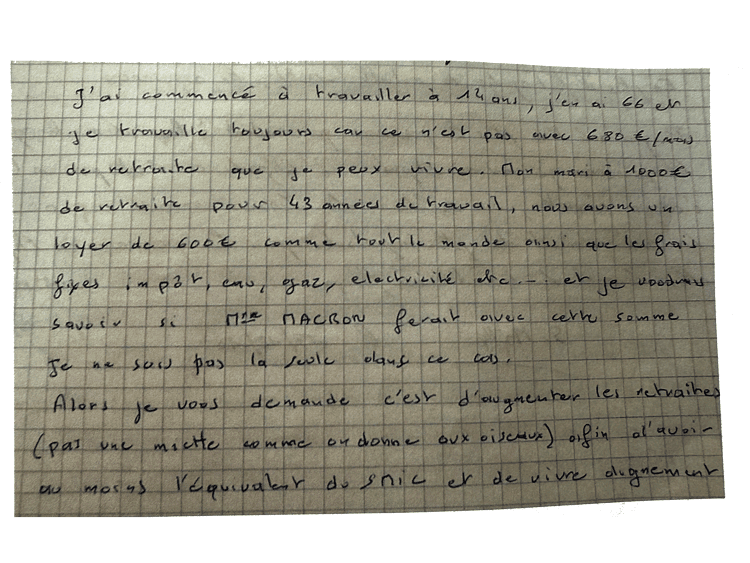 J'ai commencé à travailler à 14 ans, j'en ai 66 et
je travaille toujours car ce n'est pas avec 680 €/mois
de retraite que je peux vivre. Mon mari à 1000 €
de retraite pour 43 années de travail, nous avons un
loyer de 600 € comme tout le monde ainsi que les frais
fixes impôt, eau, gaz, electricité etc... et je voudrais
savoir si Mme MACRON ferait avec cette somme
Je ne suis pas la seule dans ce cas.
Alors je vous demande c'est d'augmenter les retraites
(pas une miette comme on donne aux oiseaux) afin d'avoir
au moins l'équivalent du SMIC et de vivre dignement